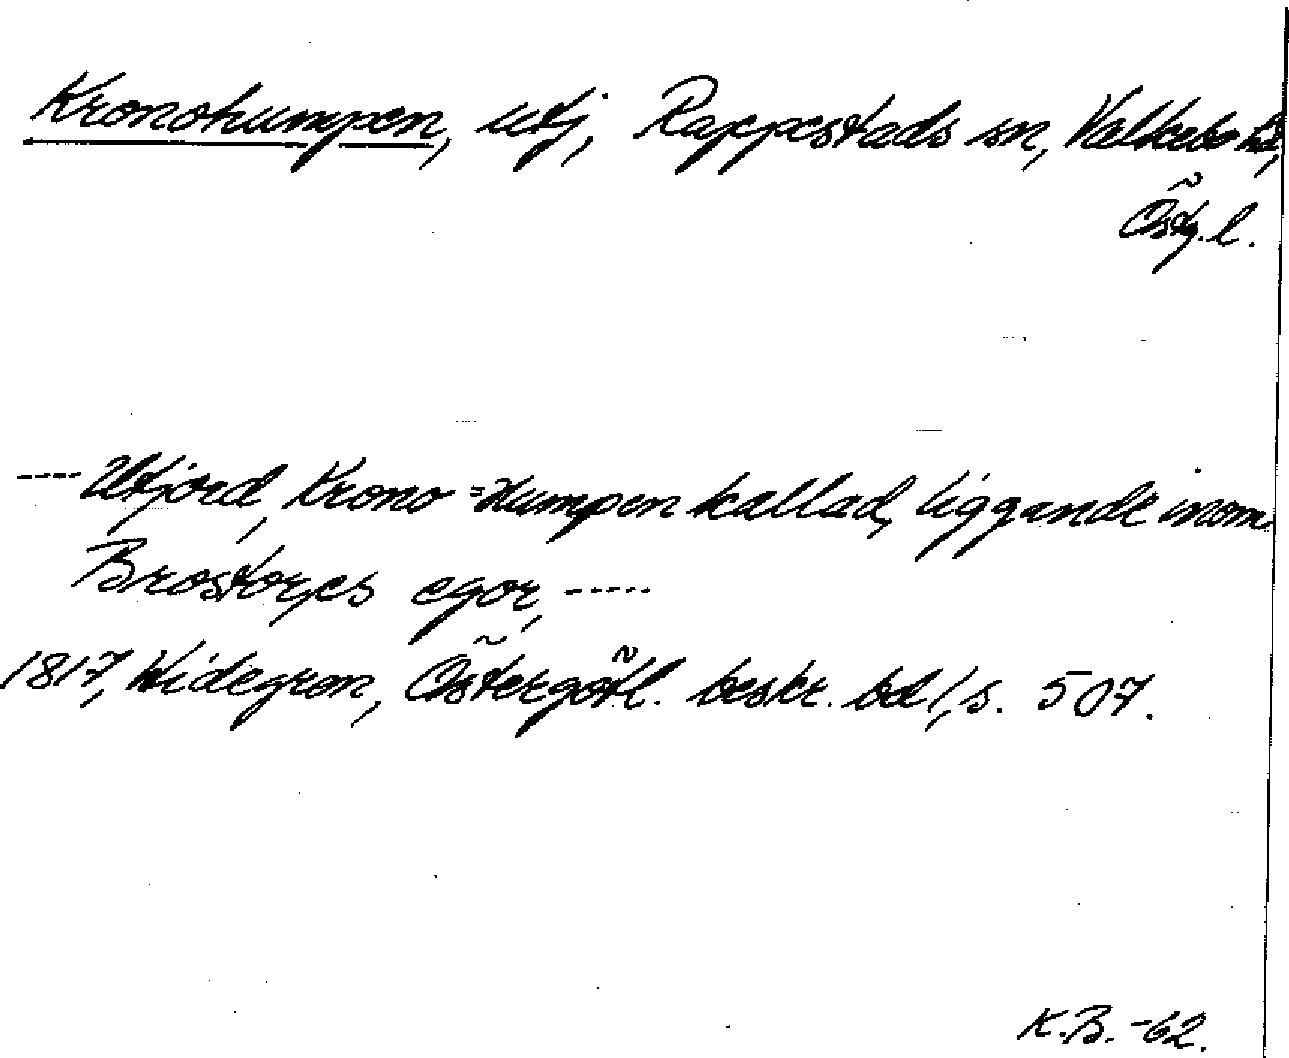 Kronohumpen, utj, Rappestads sn, Valkebo hd,
Östg. l.
---- Utjord, Krono-Humpen kallad, liggande inom
Brostorps egor, -----
1817, Widegren, Östergötl. beskr. bd 1, s. 507.
K.B. -62.